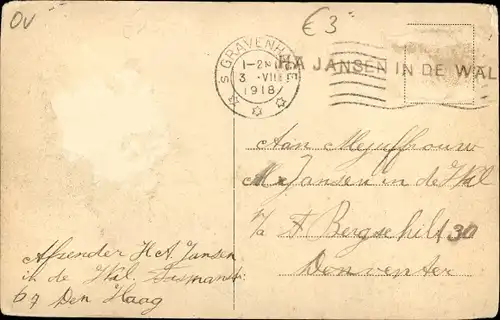 OV
€3
'S GRAVENHAGE
1-2 N
3 .VIII
1918
HA JANSEN IN DE WAL
Aan Mejuffrouw
M Jansen in de Wal
p/a Bergschild 30
Deventer
Afzender H A Jansen
in de Wal
67 Den Haag